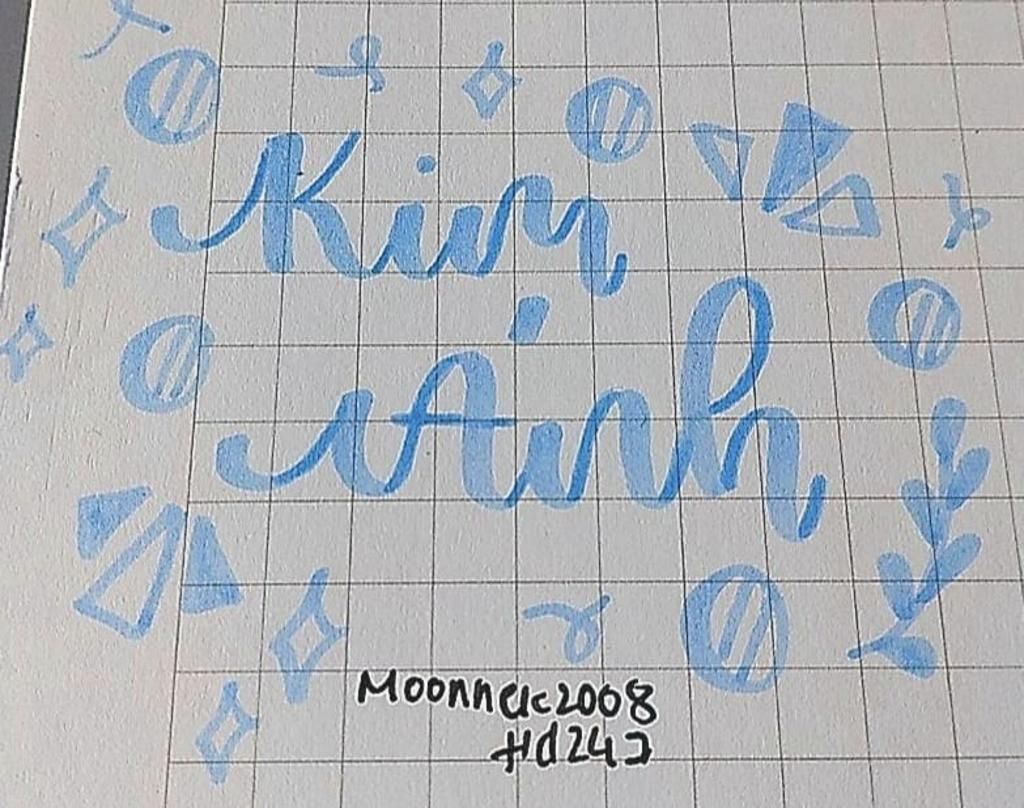 Kim
Ánh
Moonnek2008
Hd247